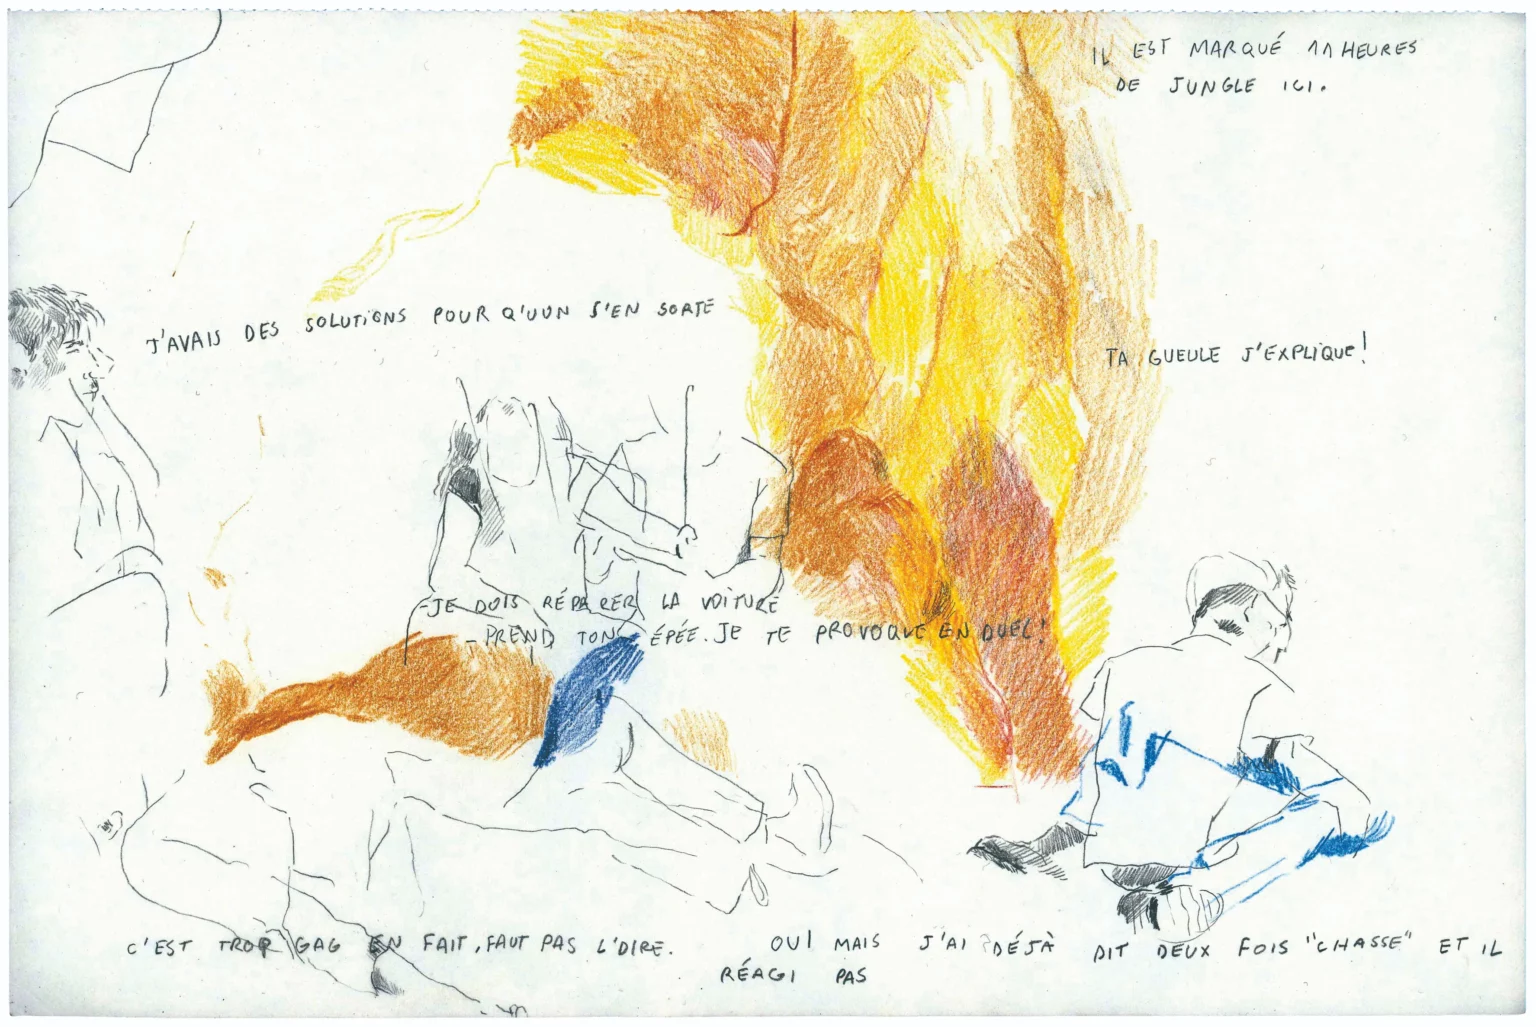 IL EST MARQUÉ 11 HEURES
DE JUNGLE ICI.
J'AVAIS DES SOLUTIONS POUR Q'UON S'EN SORTE
TA GUEULE J'EXPLIQUE!
-JE DOIS RÉPARER LA VOITURE
- PREND TON ÉPÉE. JE TE PROVOQUE EN DUEL!
C'EST TROP GAG EN FAIT, FAUT PAS L'DIRE.
OUI MAIS J'AI DÉJÀ DIT DEUX FOIS "CHASSE" ET IL
RÉAGI PAS